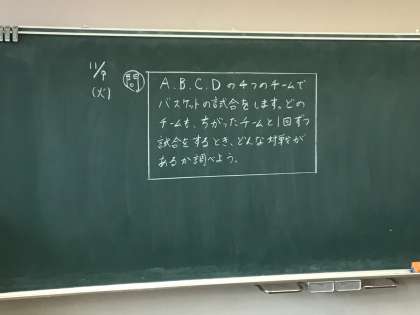 11/9
(火)
問
A.B.C.Dの4つのチームで
バスケットの試合をします。どの
チームも、ちがったチームと1回ずつ
試合をするとき、どんな対戦が
あるか調べよう。